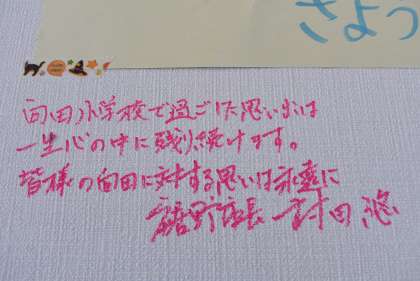 さよつ
向田小学校で過ごした思い出は
一生心の中に残り続けます。
皆様の向田に対する思いは永遠に
裾野市長 村田 悠